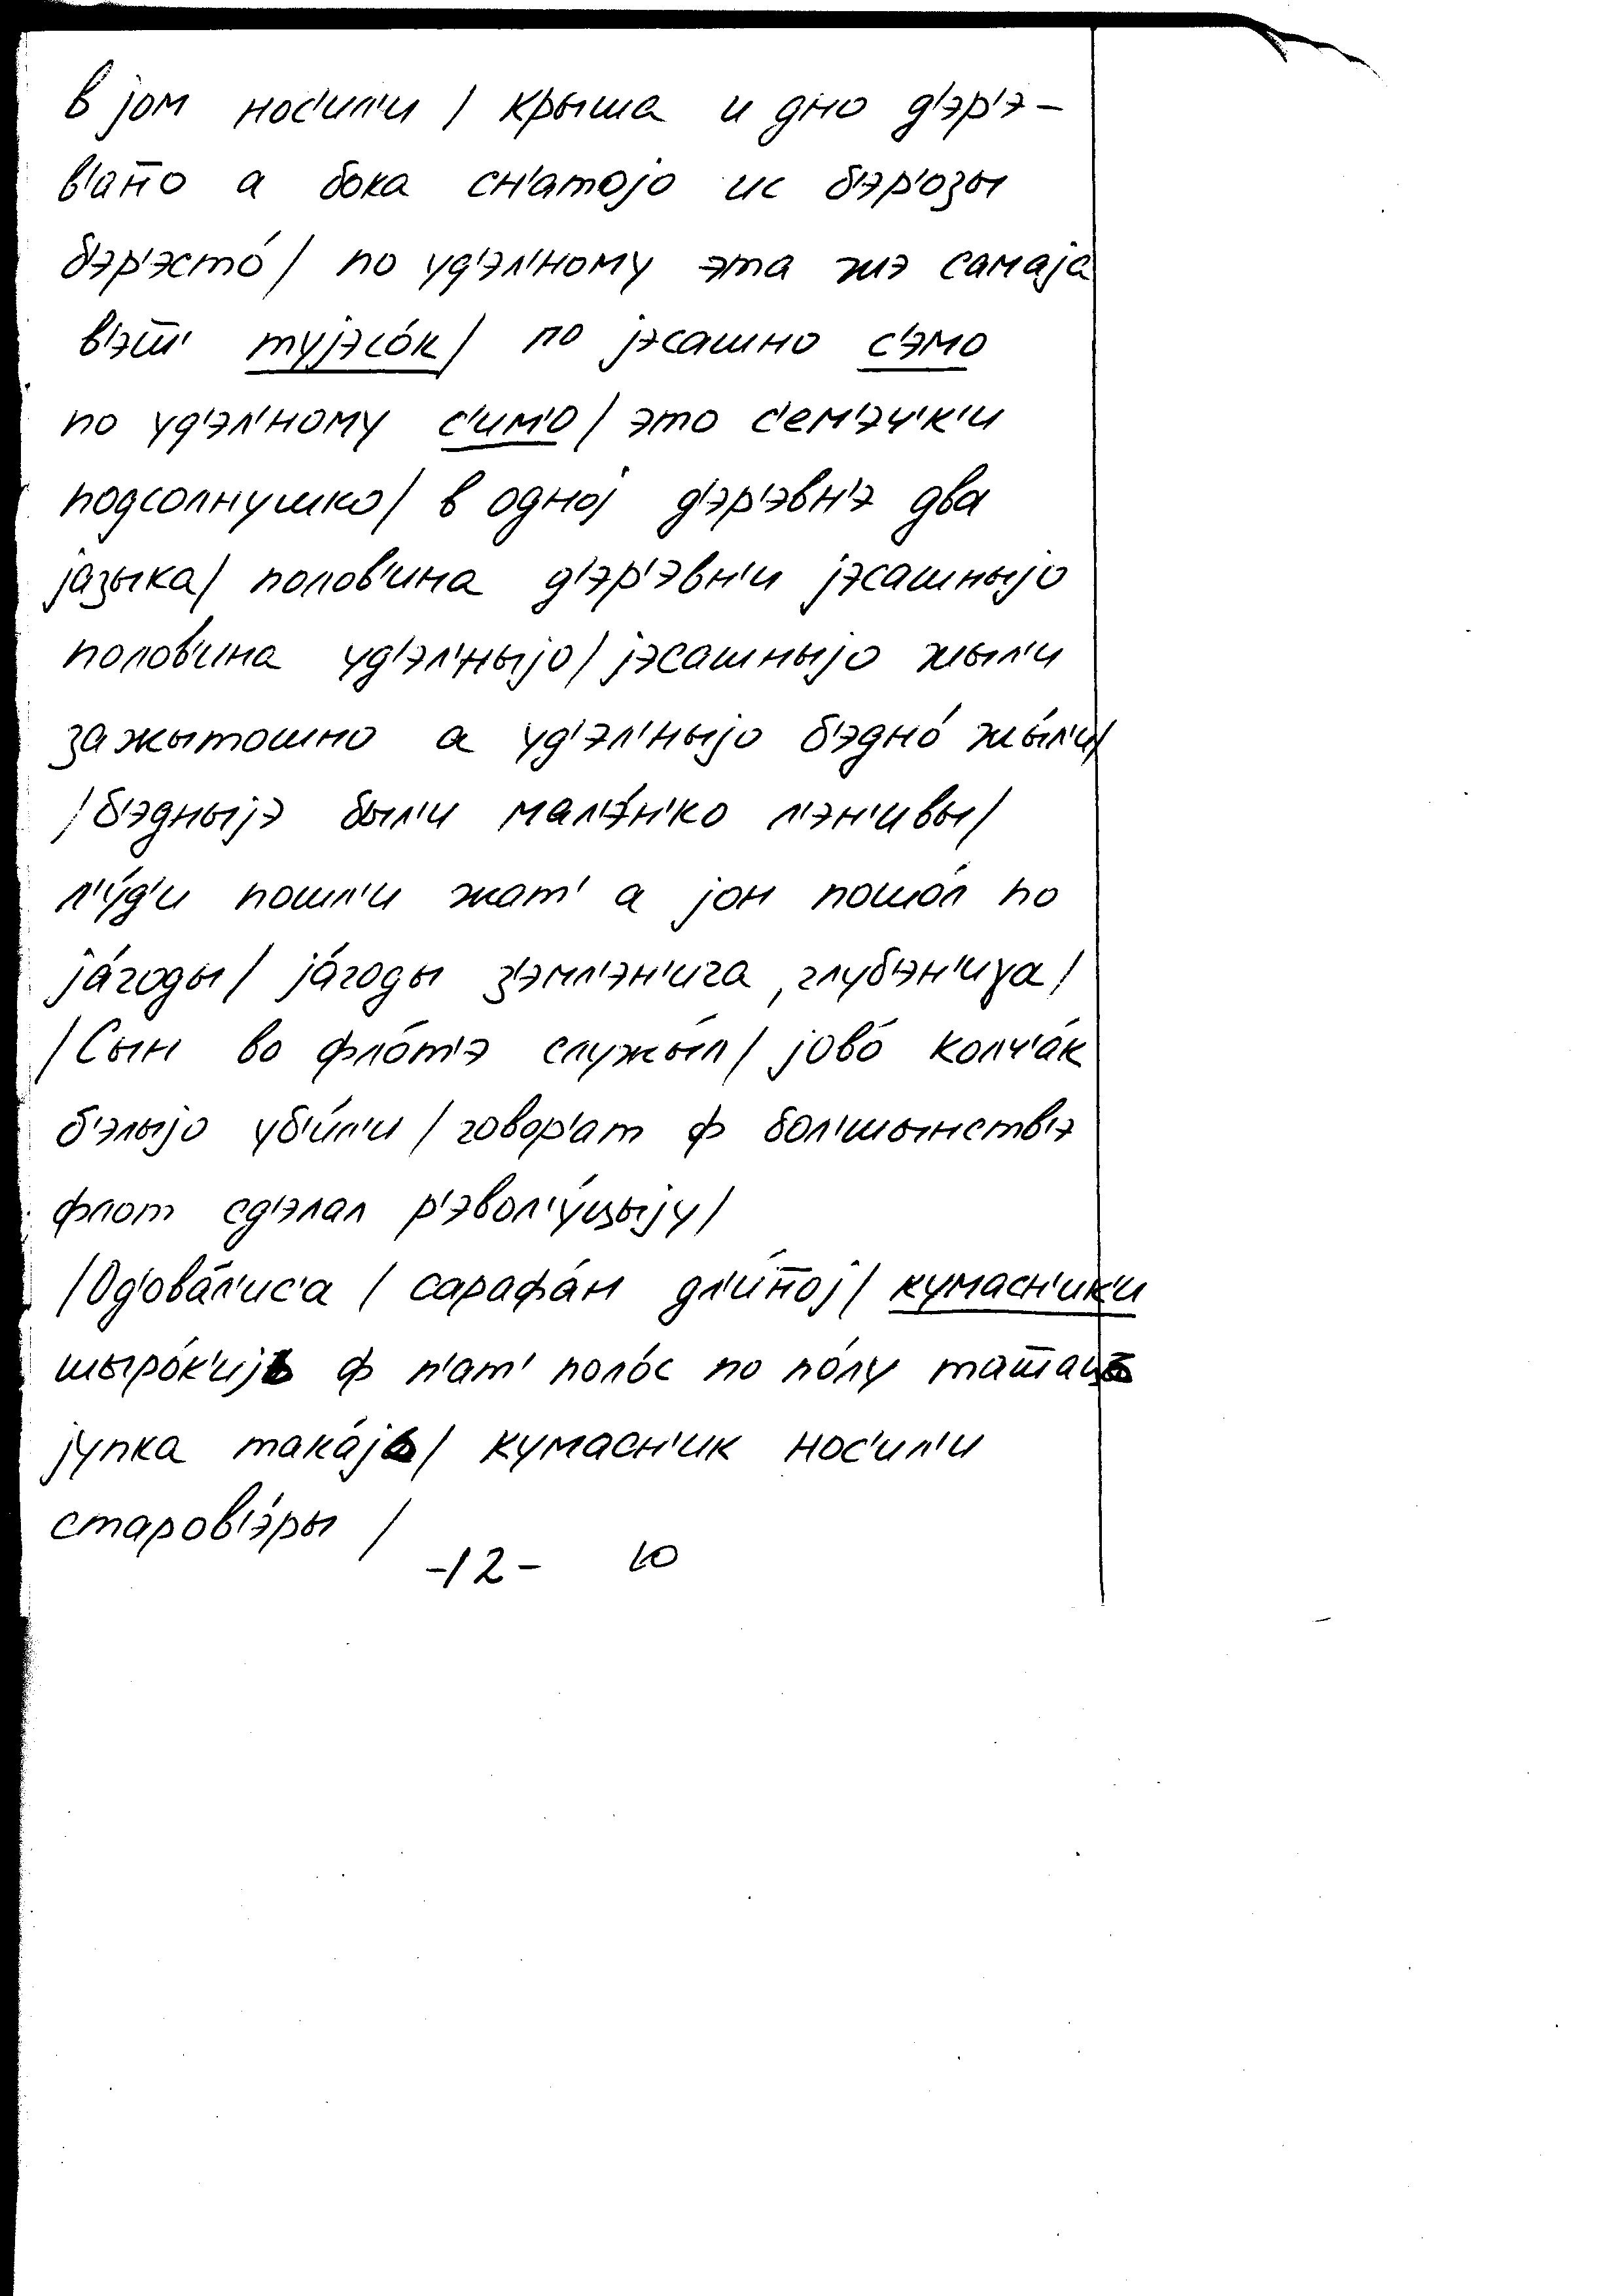 в јом нос'ил'и / крыша и дно д'эр'э-
в'ан̄о а бока сн'атојо ис б'эр'озы
б'эр'эсто́ / по уд'эл'ному эта жэ самаја
в'эш̄' тујэсо́к / по јэсашно с'эмо
по уд'эл'ному с'им'о / это с'ем'эч'к'и
подсолнушко / в одној д'эр'эвн'э два
јазыка / полов'ина д'эр'эвн'и јэсашныјо
полов'ина уд'эл'ныјо / јэсашныјо жыл'и
зажытошно а уд'эл'ныјо б'эдно́ жы́л'и /
/ б'эдныјэ был'и мал'э́н'ко л'эн'ивы /
л'у́д'и пошл'и жат' а јон пошо́л по
ја́годы / ја́годы з'эмл'эн'ига, глуб'эн'ица /
/ Сын во фло́т'э служы́л / јово́ колч'а́к
б'элыјо уб'и́л'и / говор'ат ф бол'шынств'э
флот сд'элал р'эвол'у́цыју /
/ Од'ова́л'ис'а / сарафа́н дл'и́н̄ој / кумасн'ик'и
шыро́к'ијь ф п'ат' поло́с по по́лу
јупка така́јь / кумасн'ик нос'ил'и
старов'э́ры /
-12- 10